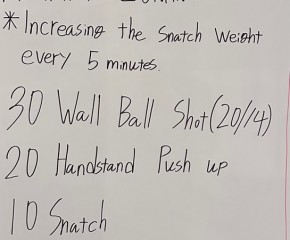 *Increasing the Snatch Weight
every 5 minutes.
30 Wall Ball Shot(20/14)
20 Handstand Push up
10 Snatch